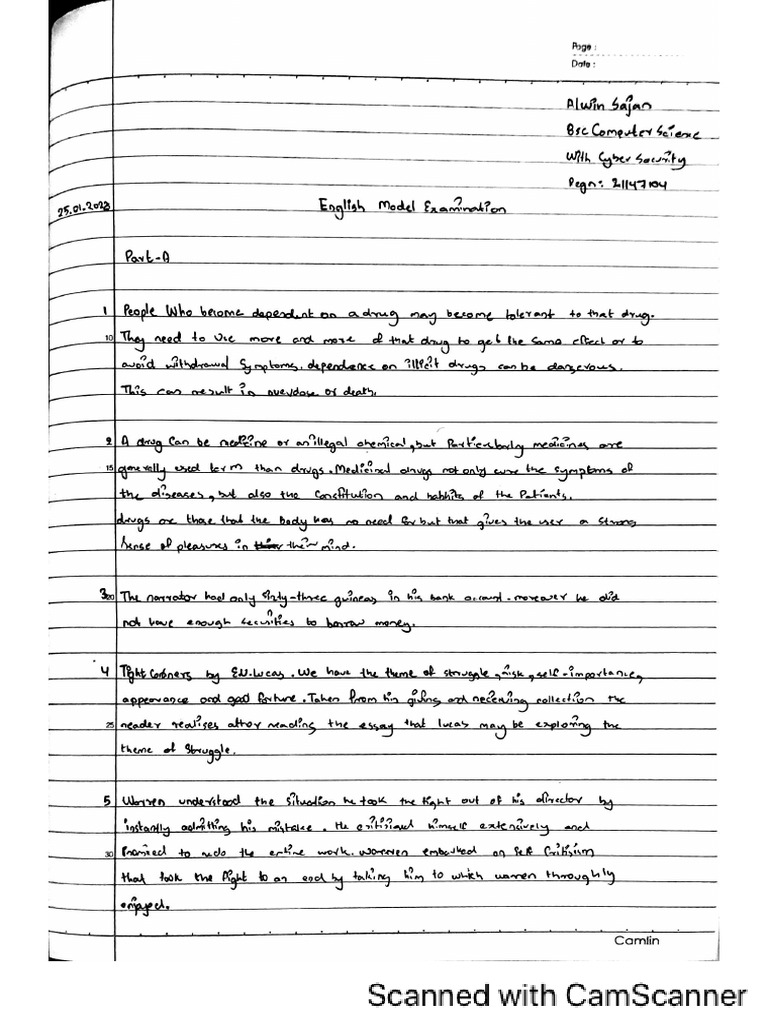 Page :
Date :
Alwin Sajan
Bsc Computer Science
With Cyber Security
Regn: 21147104
25.01.2023
English Model Examination
Part-A
1 People Who become dependent on a drug may become tolerant to that drug.
10 They need to use more and more of that drug to get the same effect or to
avoid withdrawal Symptoms. dependence on illicit drugs can be dangerous.
This can result in overdose or death.
2 A drug Can be medicine or an illegal chemical, but Particularly medicines are
15 generally used term than drugs. Medicinal drugs not only cure the symptoms of
the diseases, but also the Constitution and habbits of the Patients.
drugs are those that the body has no need for but that gives the user a strong
sense of pleasures in their mind.
3 20 The narrator had only sixty-three guineas in his bank account. moreover he did
not have enough securities to borrow money.
4 Tight Corners by E.V.Lucas. We have the theme of struggle, risk, self-importance,
appearance and good fortune. Taken from his giving and receiving collection the
25 reader realises after reading the essay that lucas may be exploring the
theme of Struggle.
5 Warren understood the situation he took the fight out of his director by
instantly admitting his mistake. He criticized himself extensively and
30 Promised to redo the entire work. Warren embarked on self Criticism
that took the fight to an end by taking him to which warren throughly
enjoyed.
Camlin
Scanned with CamScanner